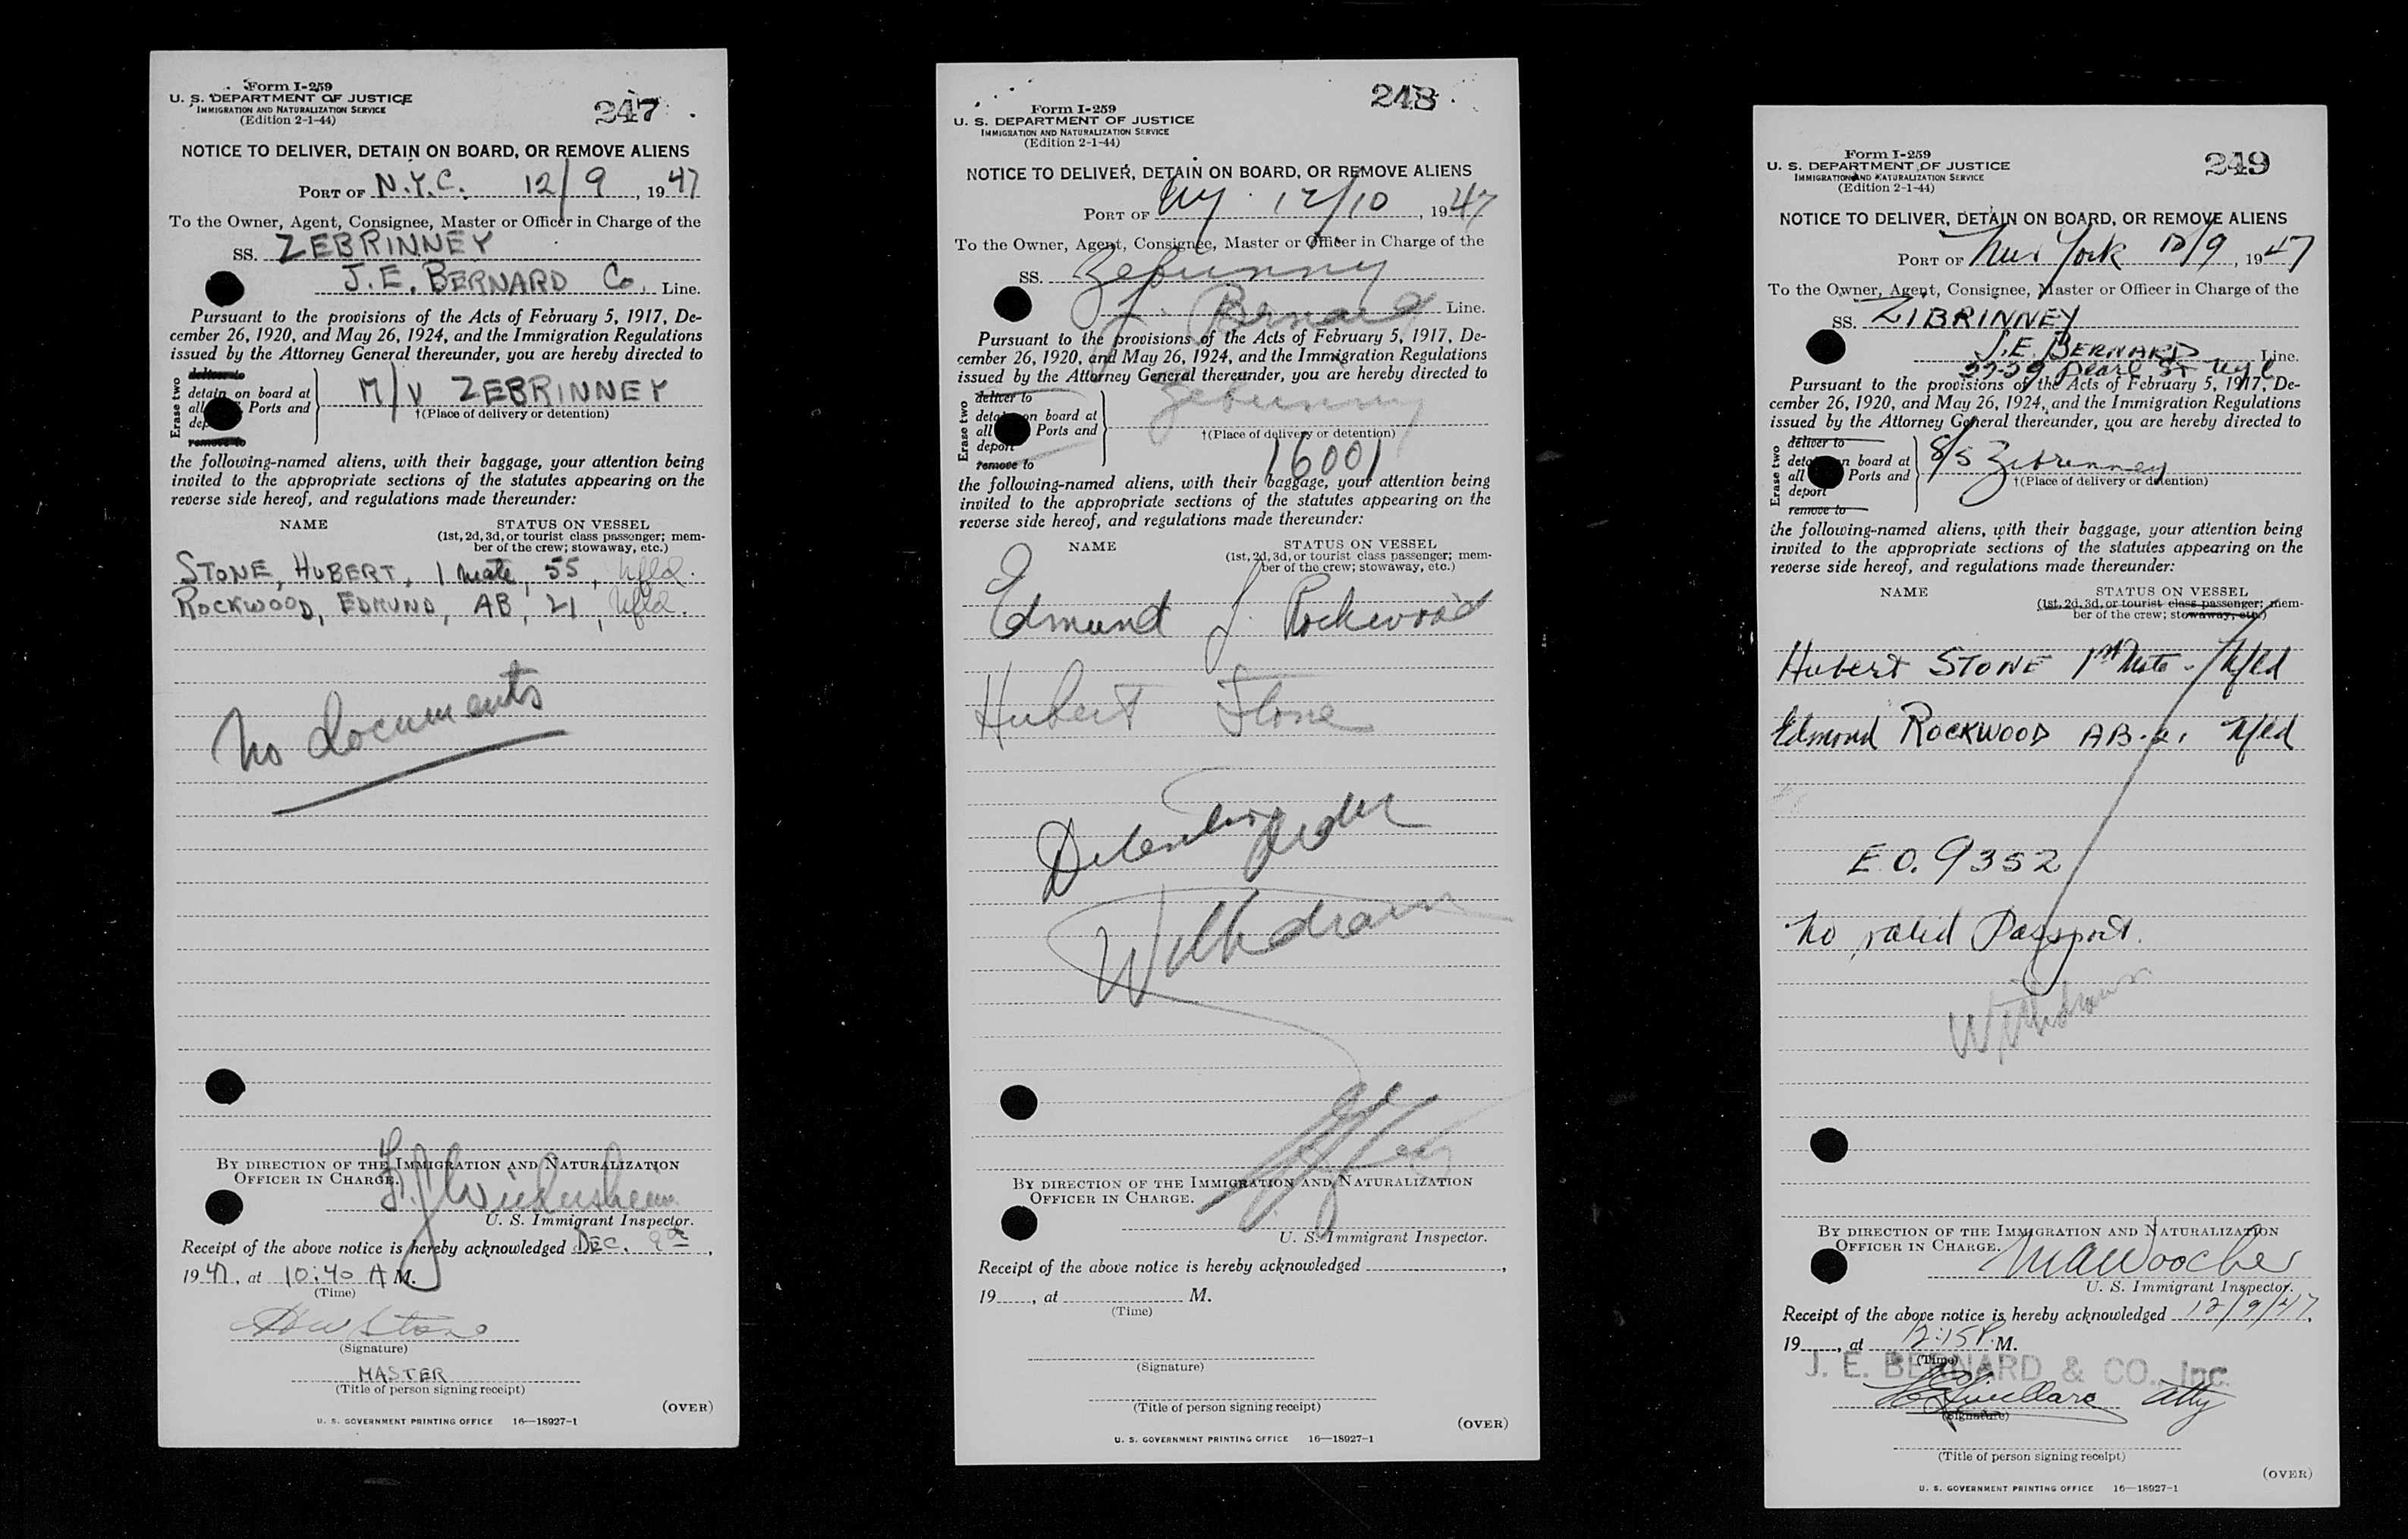 Form I-259
U. S. DEPARTMENT OF JUSTICE
IMMIGRATION AND NATURALIZATION SERVICE
(Edition 2-1-44)
247
NOTICE TO DELIVER, DETAIN ON BOARD, OR REMOVE ALIENS
PORT OF N.Y.C. 12/9, 1947
To the Owner, Agent, Consignee, Master or Officer in Charge of the
SS. ZEBRINNEY
J.E. BERNARD Co. Line.
Pursuant to the provisions of the Acts of February 5, 1917, De-
cember 26, 1920, and May 26, 1924, and the Immigration Regulations
issued by the Attorney General thereunder, you are hereby directed to
Erase two
deliver to
detain on board at
all Ports and
dep
remove to
M/V ZEBRINNEY
†(Place of delivery or detention)
the following-named aliens, with their baggage, your attention being
invited to the appropriate sections of the statutes appearing on the
reverse side hereof, and regulations made thereunder:
NAME STATUS ON VESSEL
(1st, 2d, 3d, or tourist class passenger; mem-
ber of the crew; stowaway, etc.)
STONE, HUBERT, 1 Mate, 55, Nfld.
ROCKWOOD, EDMUND, AB, 21, Nfld.
No documents
BY DIRECTION OF THE IMMIGRATION AND NATURALIZATION
OFFICER IN CHARGE.
U. S. Immigrant Inspector.
Receipt of the above notice is hereby acknowledged DEC. 9th,
1947, at 10:40 A M.
(Time)
Stone
(Signature)
MASTER
(Title of person signing receipt)
(OVER)
U. S. GOVERNMENT PRINTING OFFICE 16—18927-1
Form I-259
U. S. DEPARTMENT OF JUSTICE
IMMIGRATION AND NATURALIZATION SERVICE
(Edition 2-1-44)
248
NOTICE TO DELIVER, DETAIN ON BOARD, OR REMOVE ALIENS
PORT OF NY 12/10, 1947
To the Owner, Agent, Consignee, Master or Officer in Charge of the
SS. Zebrinny
J. Bernard Line.
Pursuant to the provisions of the Acts of February 5, 1917, De-
cember 26, 1920, and May 26, 1924, and the Immigration Regulations
issued by the Attorney General thereunder, you are hereby directed to
Erase two
deliver to
detain on board at
all Ports and
deport
remove to
Zebrinny
†(Place of delivery or detention)
16001
the following-named aliens, with their baggage, your attention being
invited to the appropriate sections of the statutes appearing on the
reverse side hereof, and regulations made thereunder:
NAME STATUS ON VESSEL
(1st, 2d, 3d, or tourist class passenger; mem-
ber of the crew; stowaway, etc.)
Edmund J. Rockwood
Hubert Stone
Detention Order
Withdrawn
BY DIRECTION OF THE IMMIGRATION AND NATURALIZATION
OFFICER IN CHARGE.
U. S. Immigrant Inspector.
Receipt of the above notice is hereby acknowledged ,
19 , at M.
(Time)
(Signature)
(Title of person signing receipt)
(OVER)
U. S. GOVERNMENT PRINTING OFFICE 16—18927-1
Form I-259
U. S. DEPARTMENT OF JUSTICE
IMMIGRATION AND NATURALIZATION SERVICE
(Edition 2-1-44)
249
NOTICE TO DELIVER, DETAIN ON BOARD, OR REMOVE ALIENS
PORT OF New York 12/9, 1947
To the Owner, Agent, Consignee, Master or Officer in Charge of the
SS. ZIBRINNEY
J.E. BERNARD Line.
37-39 Pearl St NYC
Pursuant to the provisions of the Acts of February 5, 1917, De-
cember 26, 1920, and May 26, 1924, and the Immigration Regulations
issued by the Attorney General thereunder, you are hereby directed to
Erase two
deliver to
detain on board at
all Ports and
deport
remove to
S/S Zebrenney
†(Place of delivery or detention)
the following-named aliens, with their baggage, your attention being
invited to the appropriate sections of the statutes appearing on the
reverse side hereof, and regulations made thereunder:
NAME STATUS ON VESSEL
(1st, 2d, 3d, or tourist class passenger; mem-
ber of the crew; stowaway, etc.)
Hubert STONE 1st Mate - Nfld
Edmond ROCKWOOD AB Nfld
E.O. 9352
No valid Passport.
Withdrawn
BY DIRECTION OF THE IMMIGRATION AND NATURALIZATION
OFFICER IN CHARGE.
MAWoocher
U. S. Immigrant Inspector.
Receipt of the above notice is hereby acknowledged 12/9/47,
19 , at 12:15 P. M.
(Time)
J. E. BERNARD & CO., Inc.
Atty
(Signature)
(Title of person signing receipt)
(OVER)
U. S. GOVERNMENT PRINTING OFFICE 16—18927-1